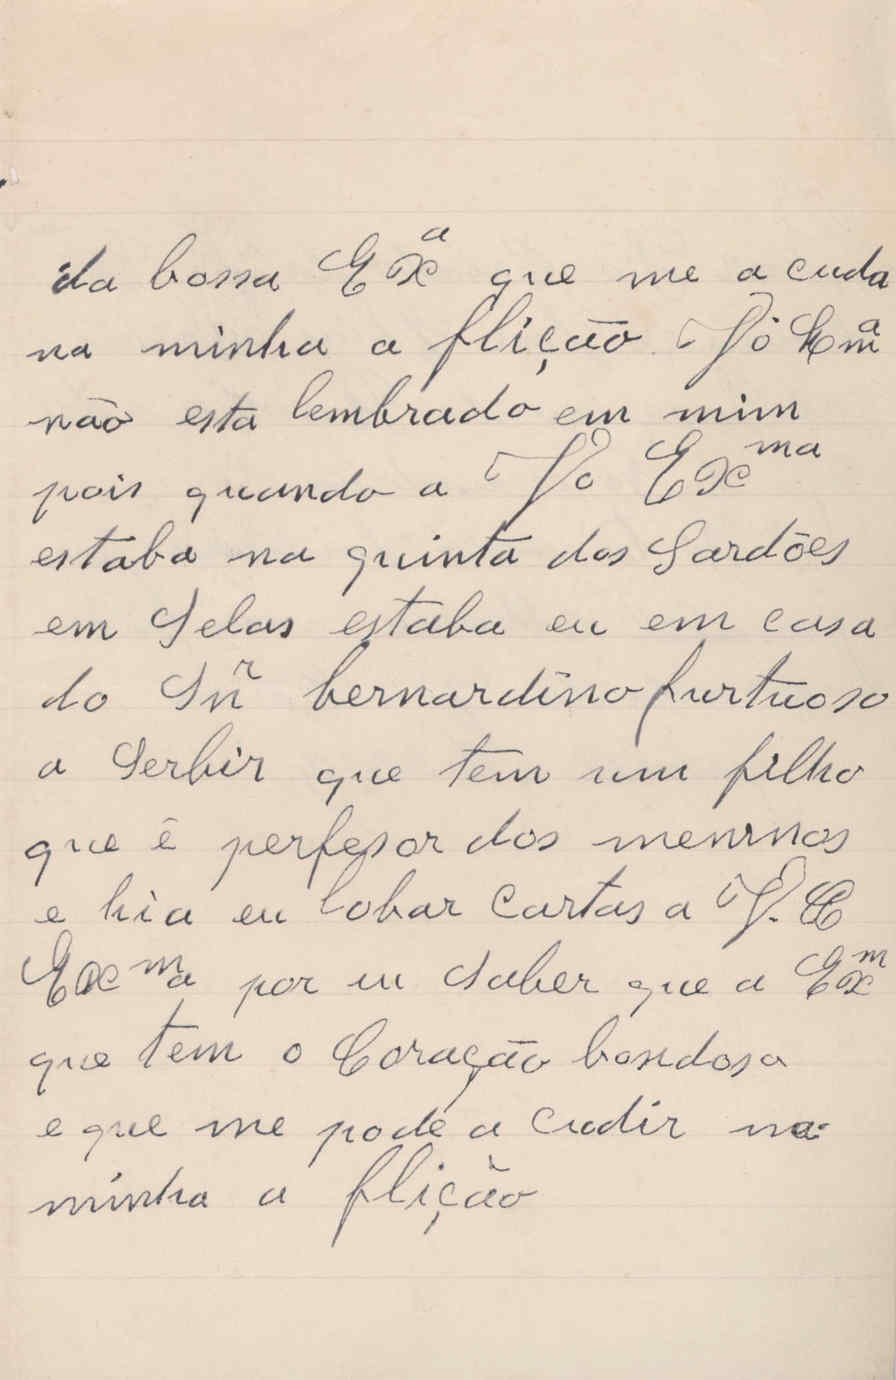 da bossa Exª que me a cuda
na minha a flição Vô Emª
não esta lembrado em mim
pois quando a Vo Excma
estaba na quinta dos Sardões
em Selas estaba eu em casa
do Snr bernardino furtuoso
a Serbir que tem um filho
que é perfesor dos meninos
e hia eu lobar Cartas a V. E
Excma por eu Saber que a Exm
que tem o Coração bondoso
e que me pode a Cudir na
minha a flição